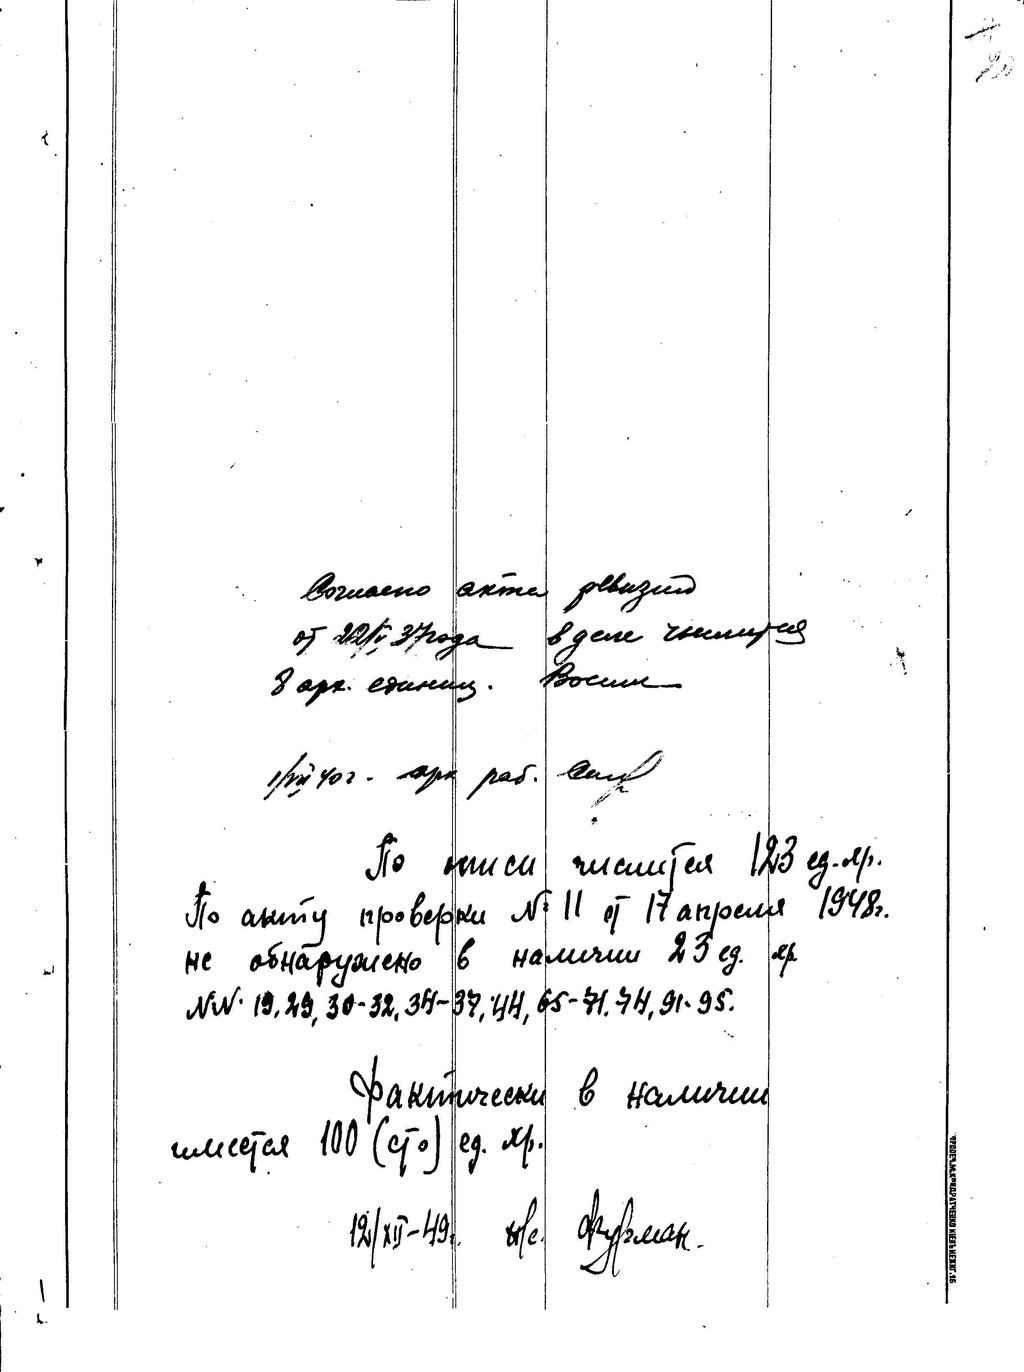 20
Согласно акта ревизии
от 22/V 37 года в деле числится
8 арх. единиц. Восем
1/VIII 40 г. арх раб.
По описи числится 123 ед. хр.
По акту проверки № 11 от 17 апреля 1948 г.
не обнаружено в наличии 23 ед. хр
№№ 19, 29, 30-32, 34-37, 44, 65-71, 74, 91-95.
Фактически в наличии
имеется 100 (сто) ед. хр.
12/XII-49 г. н/с. Фурман.